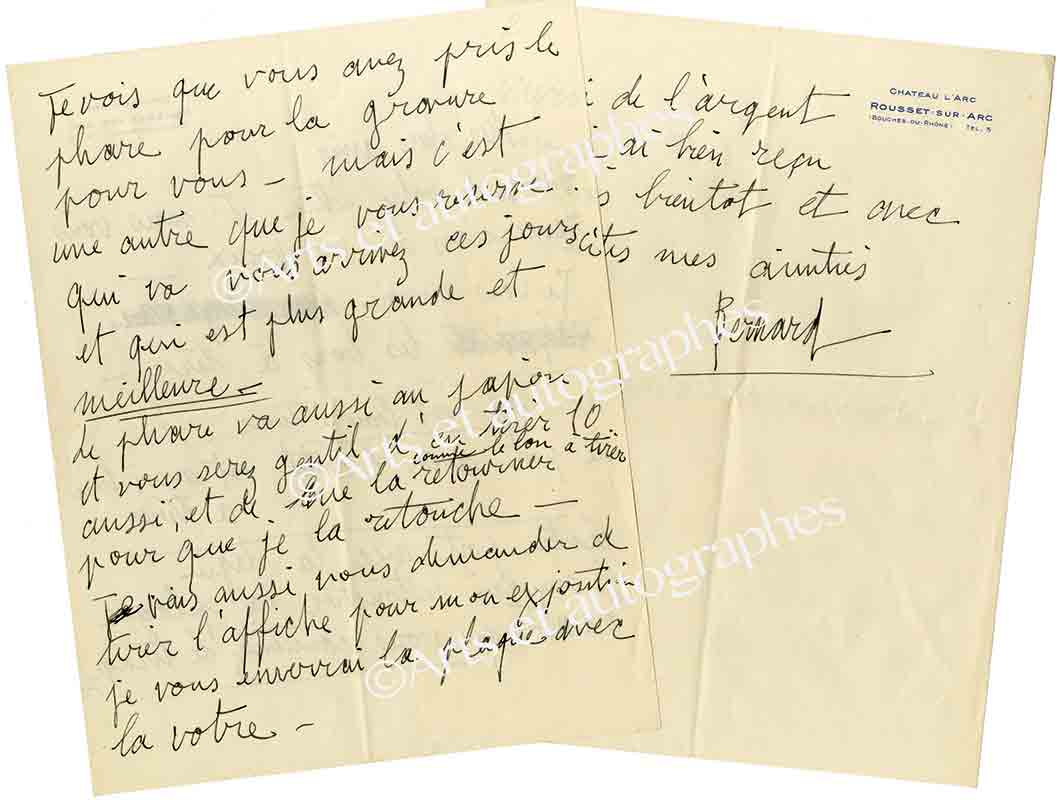 Je vois que vous avez pris le
phare pour la gravure
pour vous – mais c'est
une autre que je vous reserve
qui va vous arrivez ces jours
et qui est plus grande et
meilleure –
Le phare va aussi au japon
et vous serez gentil d'en tirer 10
comme le bon à tirer
aussi, et de me la retourner
pour que je la retouche –
Je vais aussi vous demander de
tirer l'affiche pour mon exposition
je vous enverrai la plaque avec
la votre –
CHATEAU L'ARC
ROUSSET-SUR-ARC
(BOUCHES-DU-RHÔNE) TEL. 5
i de l'argent
ai bien reçu
bientot et avec
mes amitiés
Bernard
©Arts et autographes
©Arts et autographes
©Arts et autographes